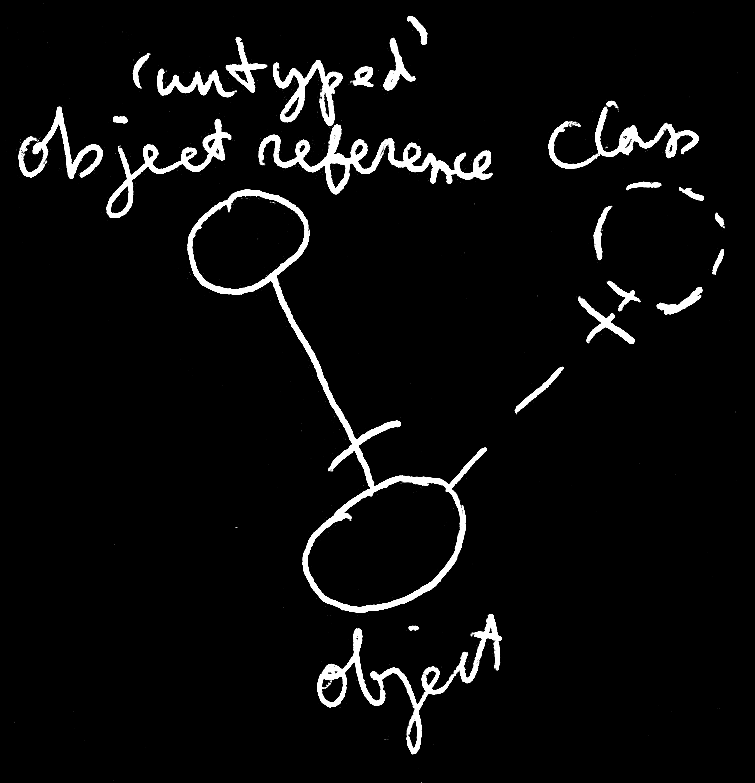 'untyped'
object reference
class
object